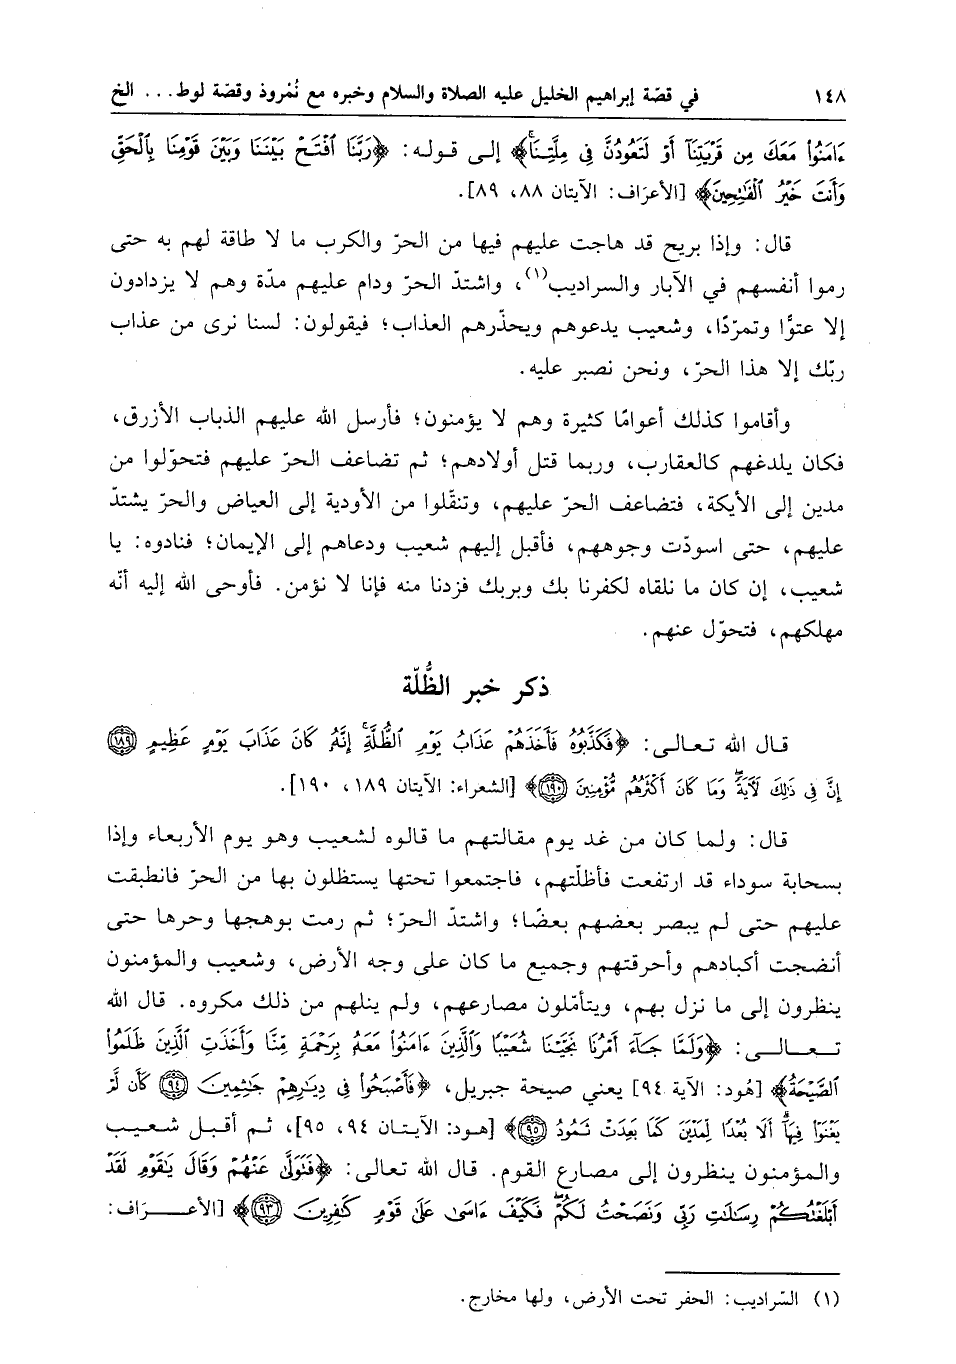 ١٤٨ في قصّة إبراهيم الخليل عليه الصلاة والسلام وخبره مع نُمْروذ وقصّة لوط... الخ
ءَامَنُوا۟ مَعَكَ مِن قَرْيَتِنَآ أَوْ لَتَعُودُنَّ فِى مِلَّتِنَاۚ﴾ إلى قوله: ﴿رَبَّنَا ٱفْتَحْ بَيْنَنَا وَبَيْنَ قَوْمِنَا بِٱلْحَقِّ
وَأَنتَ خَيْرُ ٱلْفَٰتِحِينَ﴾ [الأعرَاف: الآيتان ٨٨، ٨٩].
قال: وإذا بريح قد هاجت عليهم فيها من الحرّ والكرب ما لا طاقة لهم به حتى
رموا أنفسهم في الآبار والسراديب(١)، واشتدّ الحرّ ودام عليهم مدّة وهم لا يزدادون
إلا عتوًّا وتمرّدًا، وشعيب يدعوهم ويحذّرهم العذاب؛ فيقولون: لسنا نرى من عذاب
ربّك إلا هذا الحرّ، ونحن نصبر عليه.
وأقاموا كذلك أعوامًا كثيرة وهم لا يؤمنون؛ فأرسل الله عليهم الذباب الأزرق،
فكان يلدغهم كالعقارب، وربما قتل أولادهم؛ ثم تضاعف الحرّ عليهم فتحوّلوا من
مدين إلى الأيكة، فتضاعف الحرّ عليهم، وتنقّلوا من الأودية إلى العياض والحرّ يشتدّ
عليهم، حتى اسودّت وجوههم، فأقبل إليهم شعيب ودعاهم إلى الإيمان؛ فنادوه: يا
شعيب، إن كان ما نلقاه لكفرنا بك وبربك فزدنا منه فإنا لا نؤمن. فأوحى الله إليه أنّه
مهلكهم، فتحوّل عنهم.
ذكر خبر الظُّلّة
قال الله تعالى: ﴿فَكَذَّبُوهُ فَأَخَذَهُمْ عَذَابُ يَوْمِ ٱلظُّلَّةِۚ إِنَّهُۥ كَانَ عَذَابَ يَوْمٍ عَظِيمٍ ١٨٩
إِنَّ فِى ذَٰلِكَ لَآيَةًۖ وَمَا كَانَ أَكْثَرُهُم مُّؤْمِنِينَ ١٩٠﴾ [الشعراء: الآيتان ١٨٩، ١٩٠].
قال: ولما كان من غد يوم مقالتهم ما قالوه لشعيب وهو يوم الأربعاء وإذا
بسحابة سوداء قد ارتفعت فأظلّتهم، فاجتمعوا تحتها يستظلون بها من الحرّ فانطبقت
عليهم حتى لم يبصر بعضهم بعضًا؛ واشتدّ الحرّ؛ ثم رمت بوهجها وحرها حتى
أنضجت أكبادهم وأحرقتهم وجميع ما كان على وجه الأرض، وشعيب والمؤمنون
ينظرون إلى ما نزل بهم، ويتأمّلون مصارعهم، ولم ينلهم من ذلك مكروه. قال الله
تعالى: ﴿وَلَمَّا جَآءَ أَمْرُنَا نَجَّيْنَا شُعَيْبًا وَٱلَّذِينَ ءَامَنُوا۟ مَعَهُۥ بِرَحْمَةٍ مِّنَّا وَأَخَذَتِ ٱلَّذِينَ ظَلَمُوا۟
ٱلصَّيْحَةُ﴾ [هُود: الآية ٩٤] يعني صيحة جبريل، ﴿فَأَصْبَحُوا۟ فِى دِيَٰرِهِمْ جَٰثِمِينَ ٩٤ كَأَن لَّمْ
يَغْنَوْا۟ فِيهَآۗ أَلَا بُعْدًا لِّمَدْيَنَ كَمَا بَعِدَتْ ثَمُودُ ٩٥﴾ [هود: الآيتان ٩٤، ٩٥]، ثم أقبل شعيب
والمؤمنون ينظرون إلى مصارع القوم. قال الله تعالى: ﴿فَتَوَلَّىٰ عَنْهُمْ وَقَالَ يَٰقَوْمِ لَقَدْ
أَبْلَغْتُكُمْ رِسَٰلَٰتِ رَبِّى وَنَصَحْتُ لَكُمْۖ فَكَيْفَ ءَاسَىٰ عَلَىٰ قَوْمٍ كَٰفِرِينَ ٩٣﴾ [الأعراف:
(١) السّراديب: الحفر تحت الأرض، ولها مخارج.